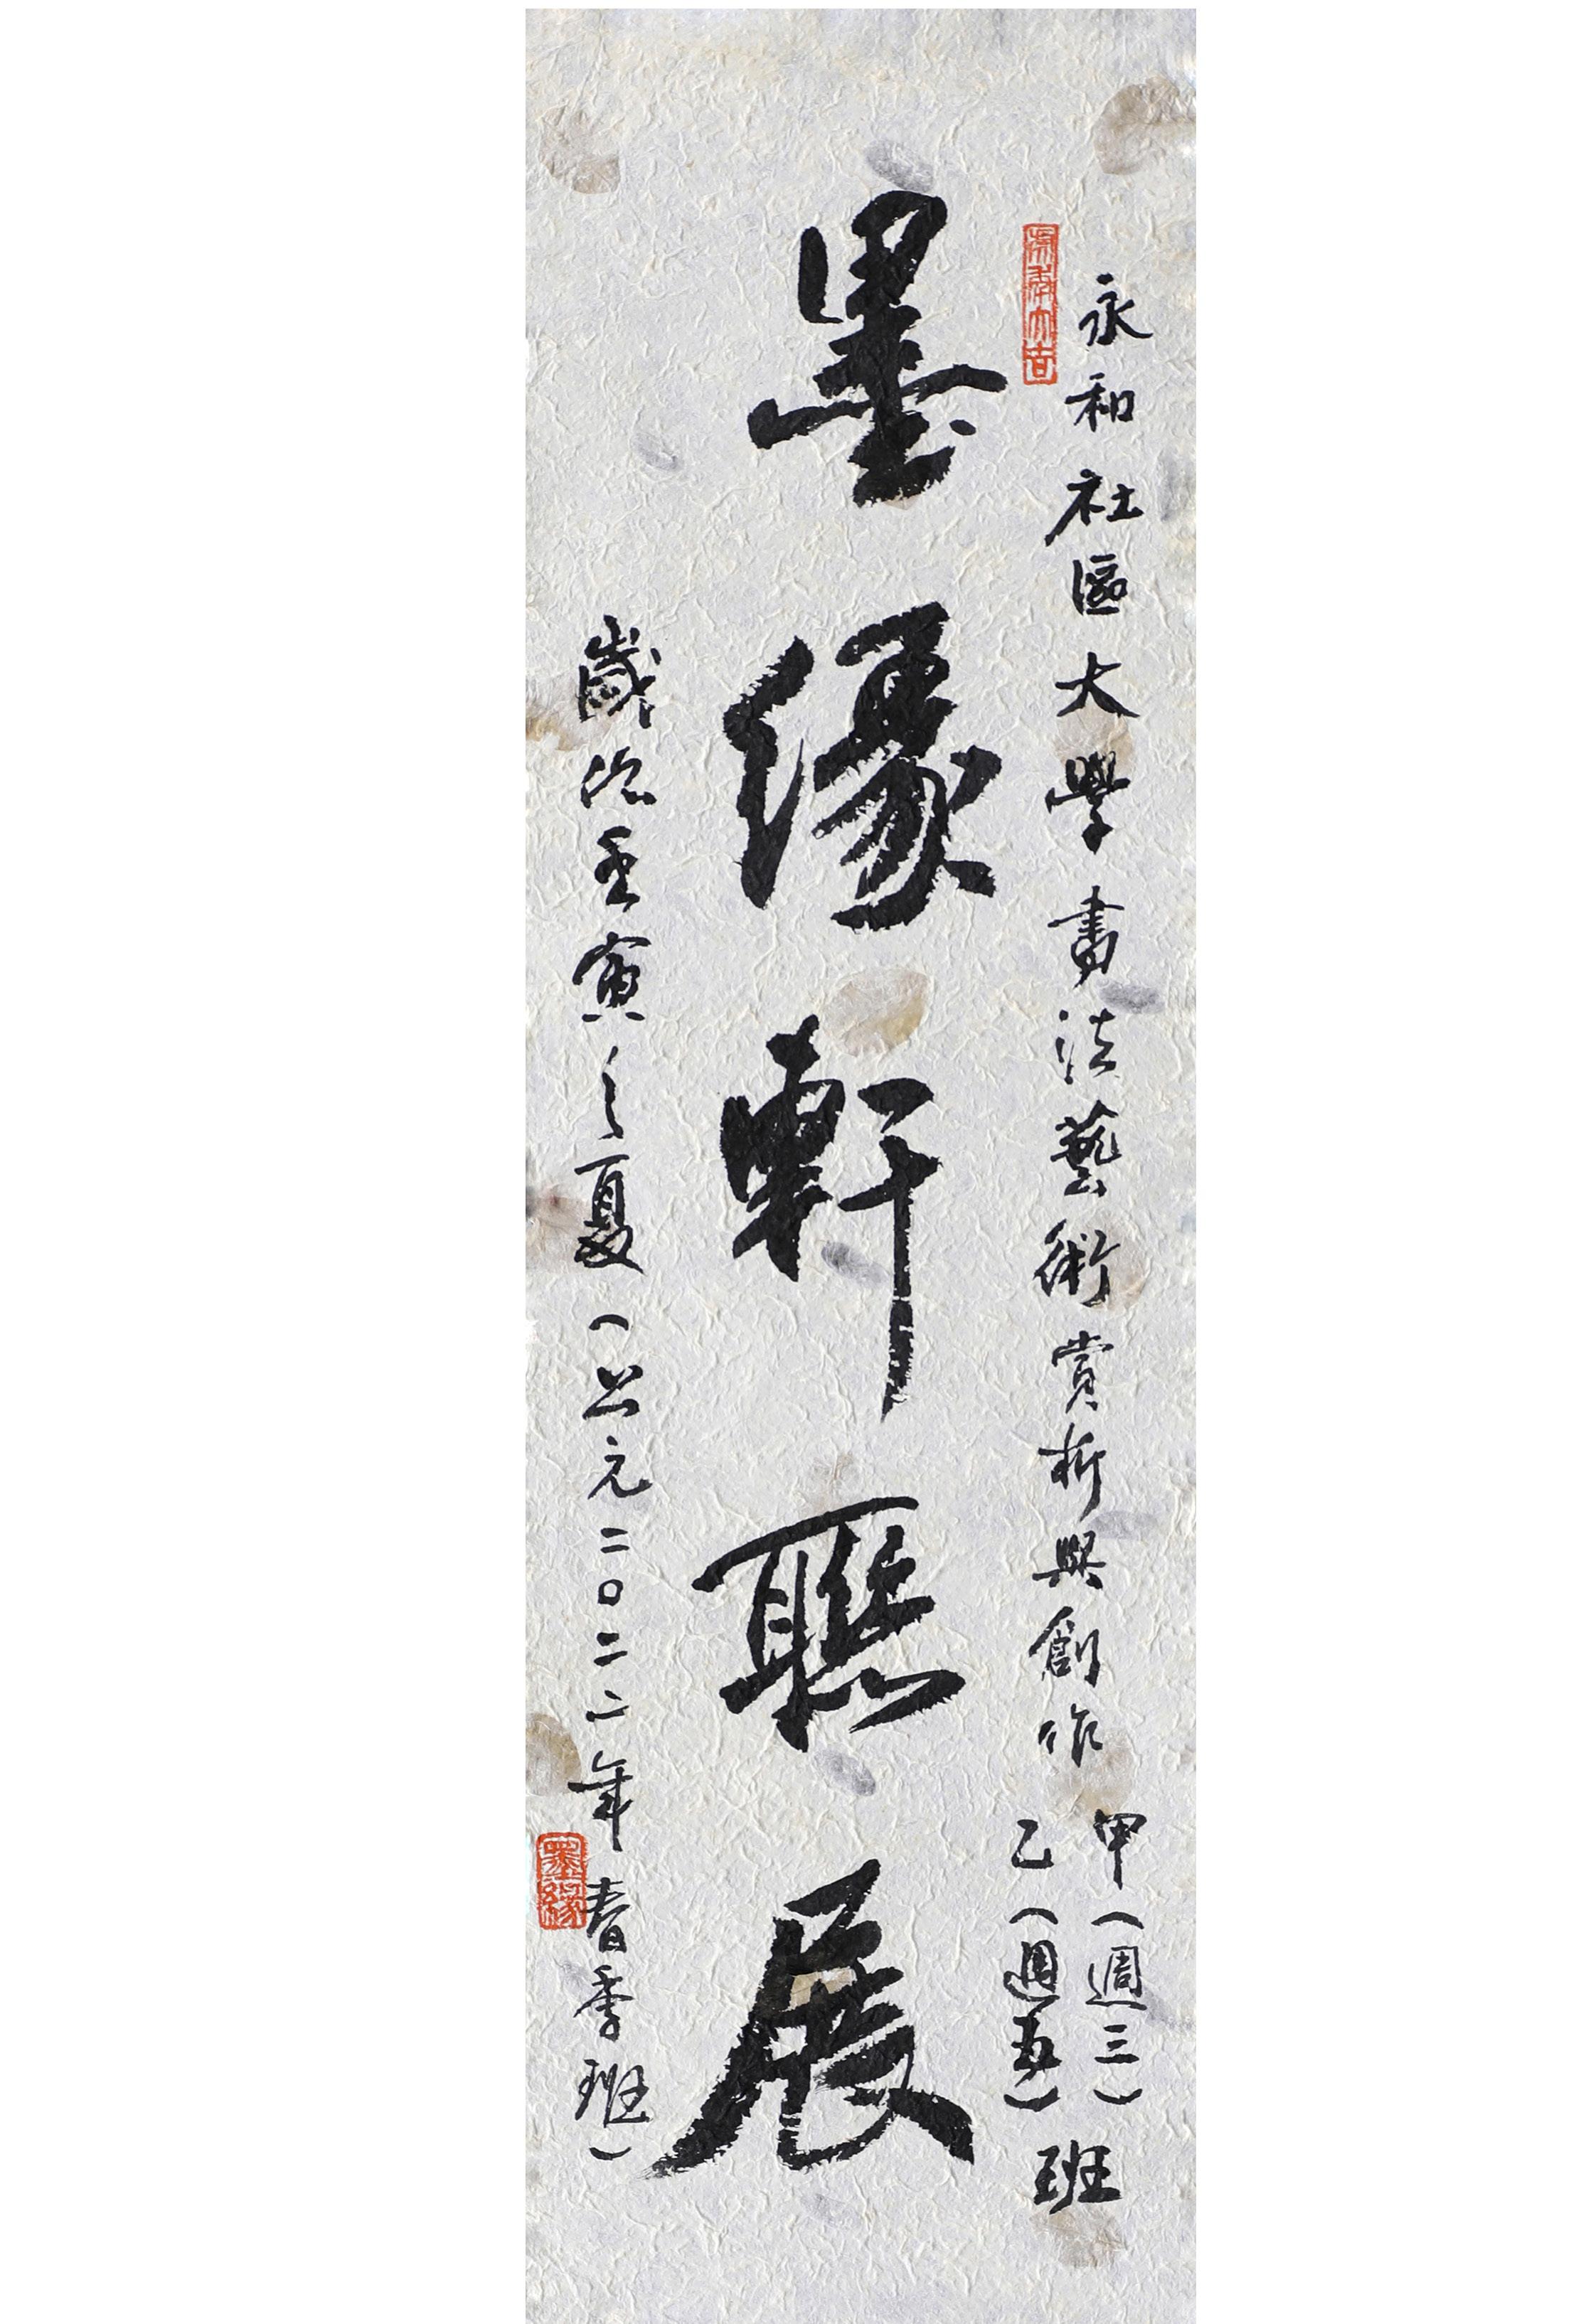 永和社區大學書法藝術賞析與創作
甲（週三）
乙（週五）
班
墨緣軒聯展
歲次壬寅之夏（公元二〇二二年春季班）
墨緣